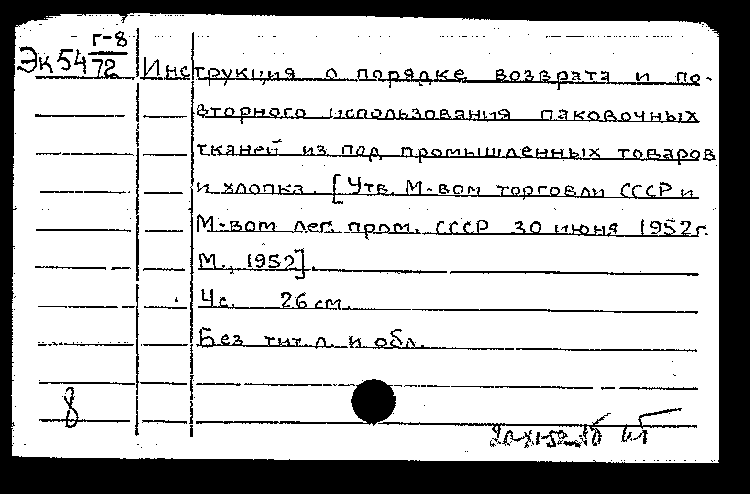 Эк54 г-8/72
Инструкция о порядке возврата и по-
вторного использования паковочных
тканей из под промышленных товаров
и хлопка. [Утв. М-вом торговли СССР и
М-вом лег. пром. СССР 30 июня 1952г.
М., 1952].
4с. 26 см.
Без тит. л. и обл.
8